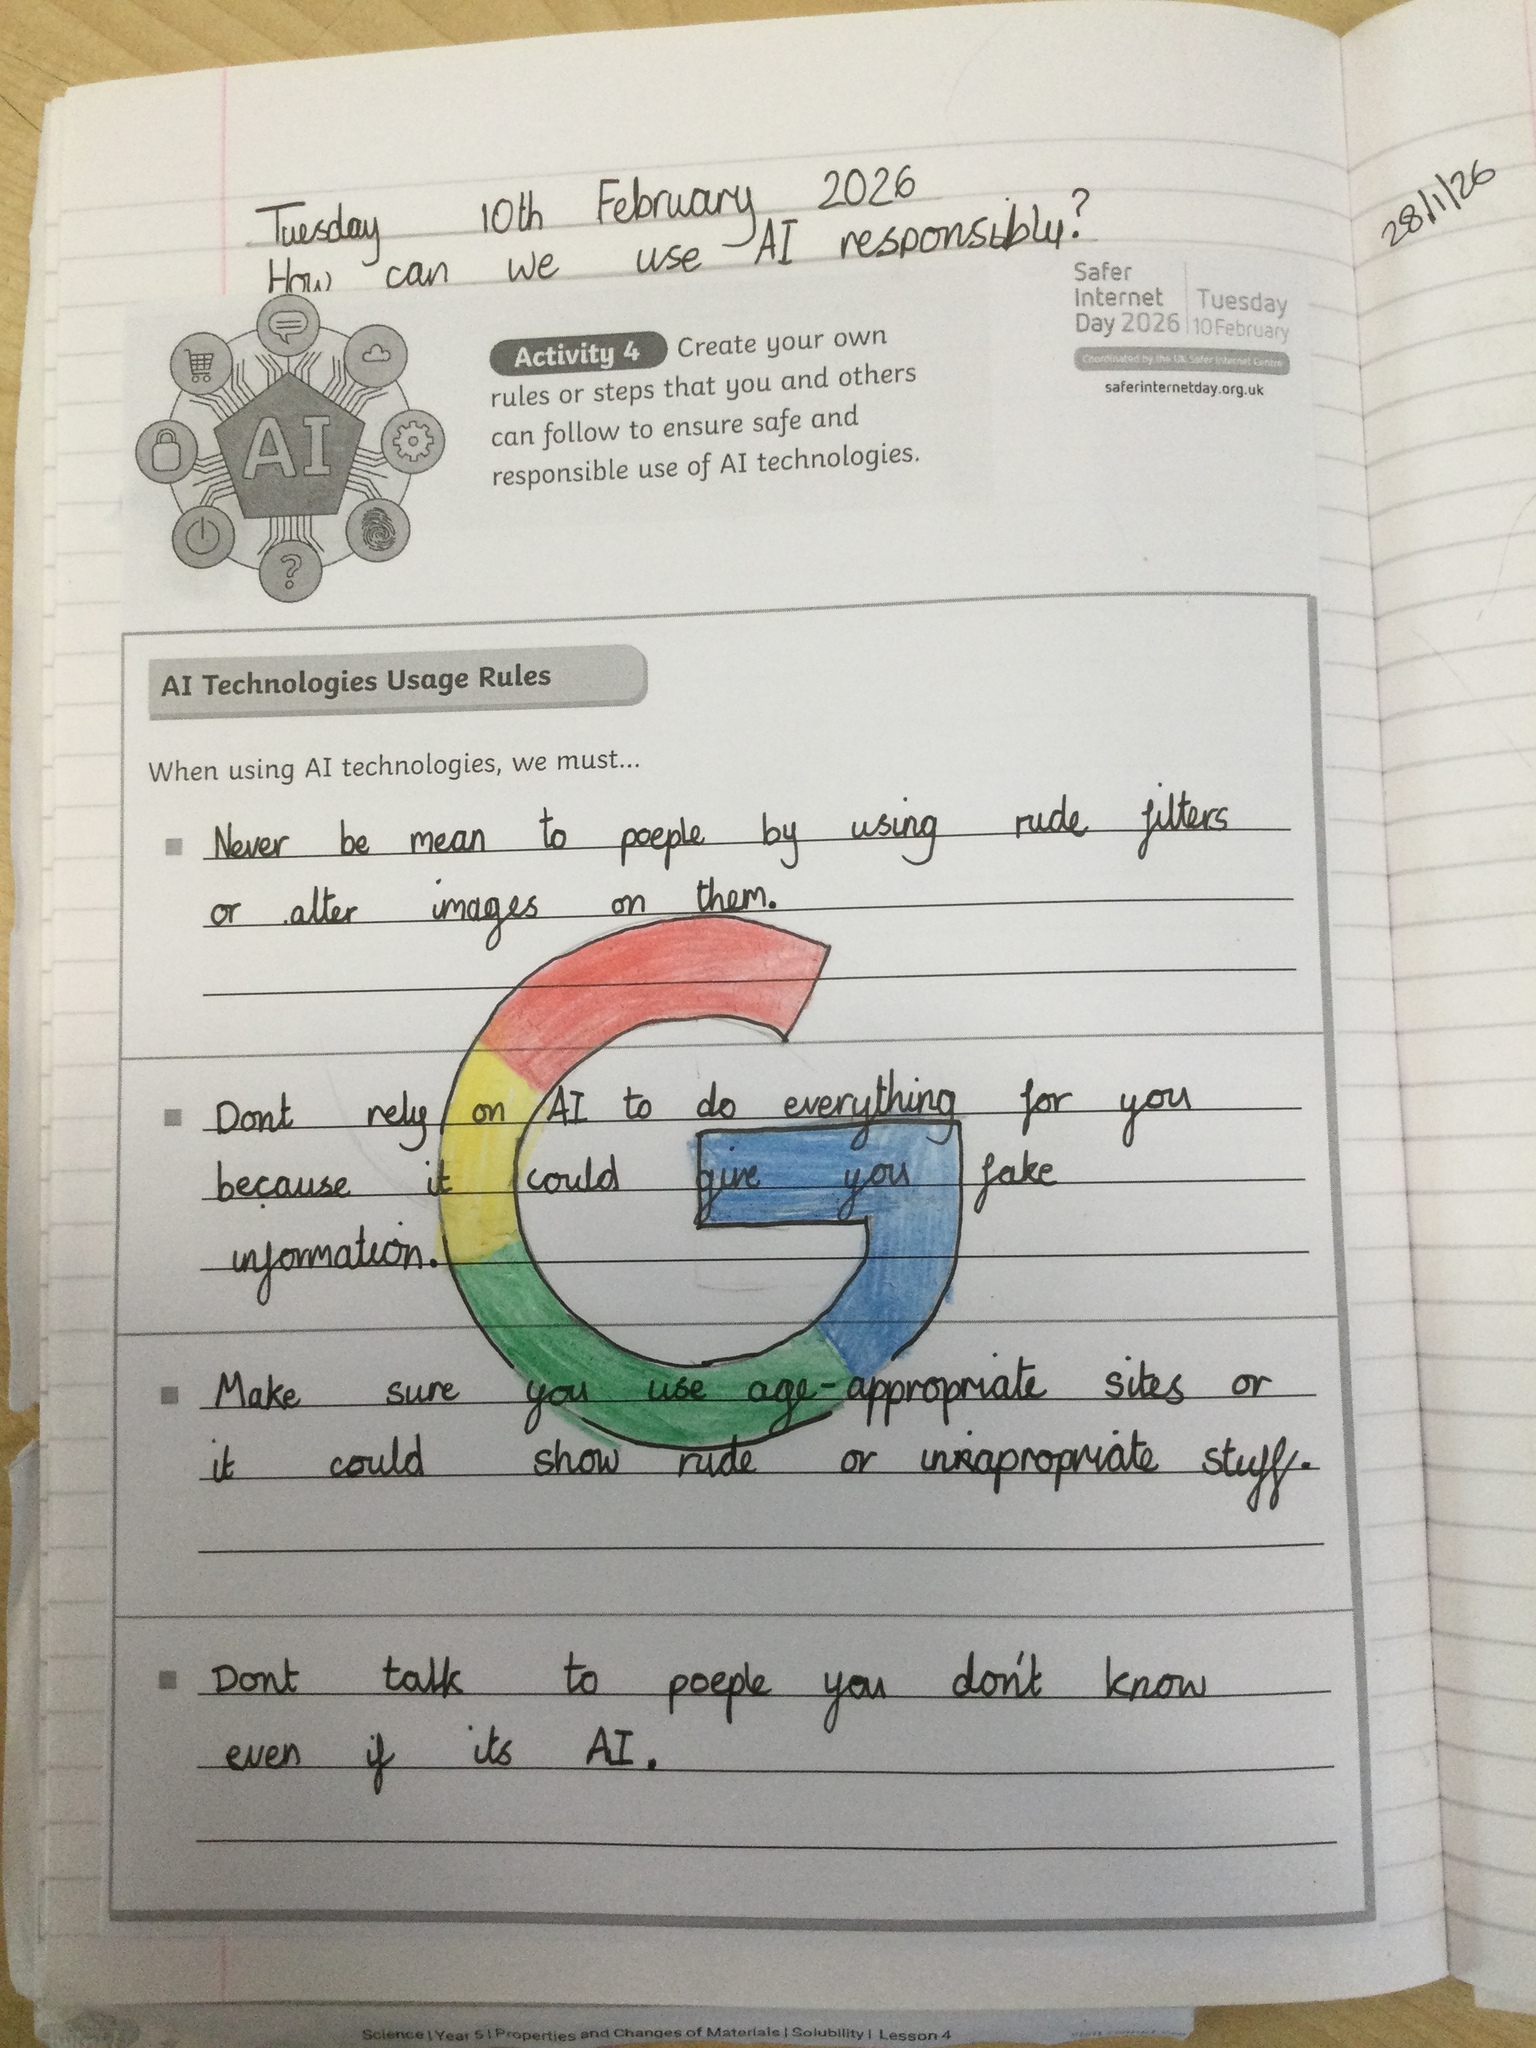 Tuesday 10th February 2026
How can we use AI responsibly?
28/1/26
Safer
Internet
Day 2026
Tuesday
10 February
Coordinated by the UK Safer Internet Centre
saferinternetday.org.uk
AI
?
Activity 4 Create your own
rules or steps that you and others
can follow to ensure safe and
responsible use of AI technologies.
AI Technologies Usage Rules
When using AI technologies, we must...
Never be mean to poeple by using rude filters
or alter images on them.
Dont rely on AI to do everything for you
because it could give you fake
information.
Make sure you use age-appropriate sites or
it could show rude or inapropriate stuff.
Dont talk to poeple you don't know
even if its AI.
G
Science | Year 5 | Properties and Changes of Materials | Solubility | Lesson 4